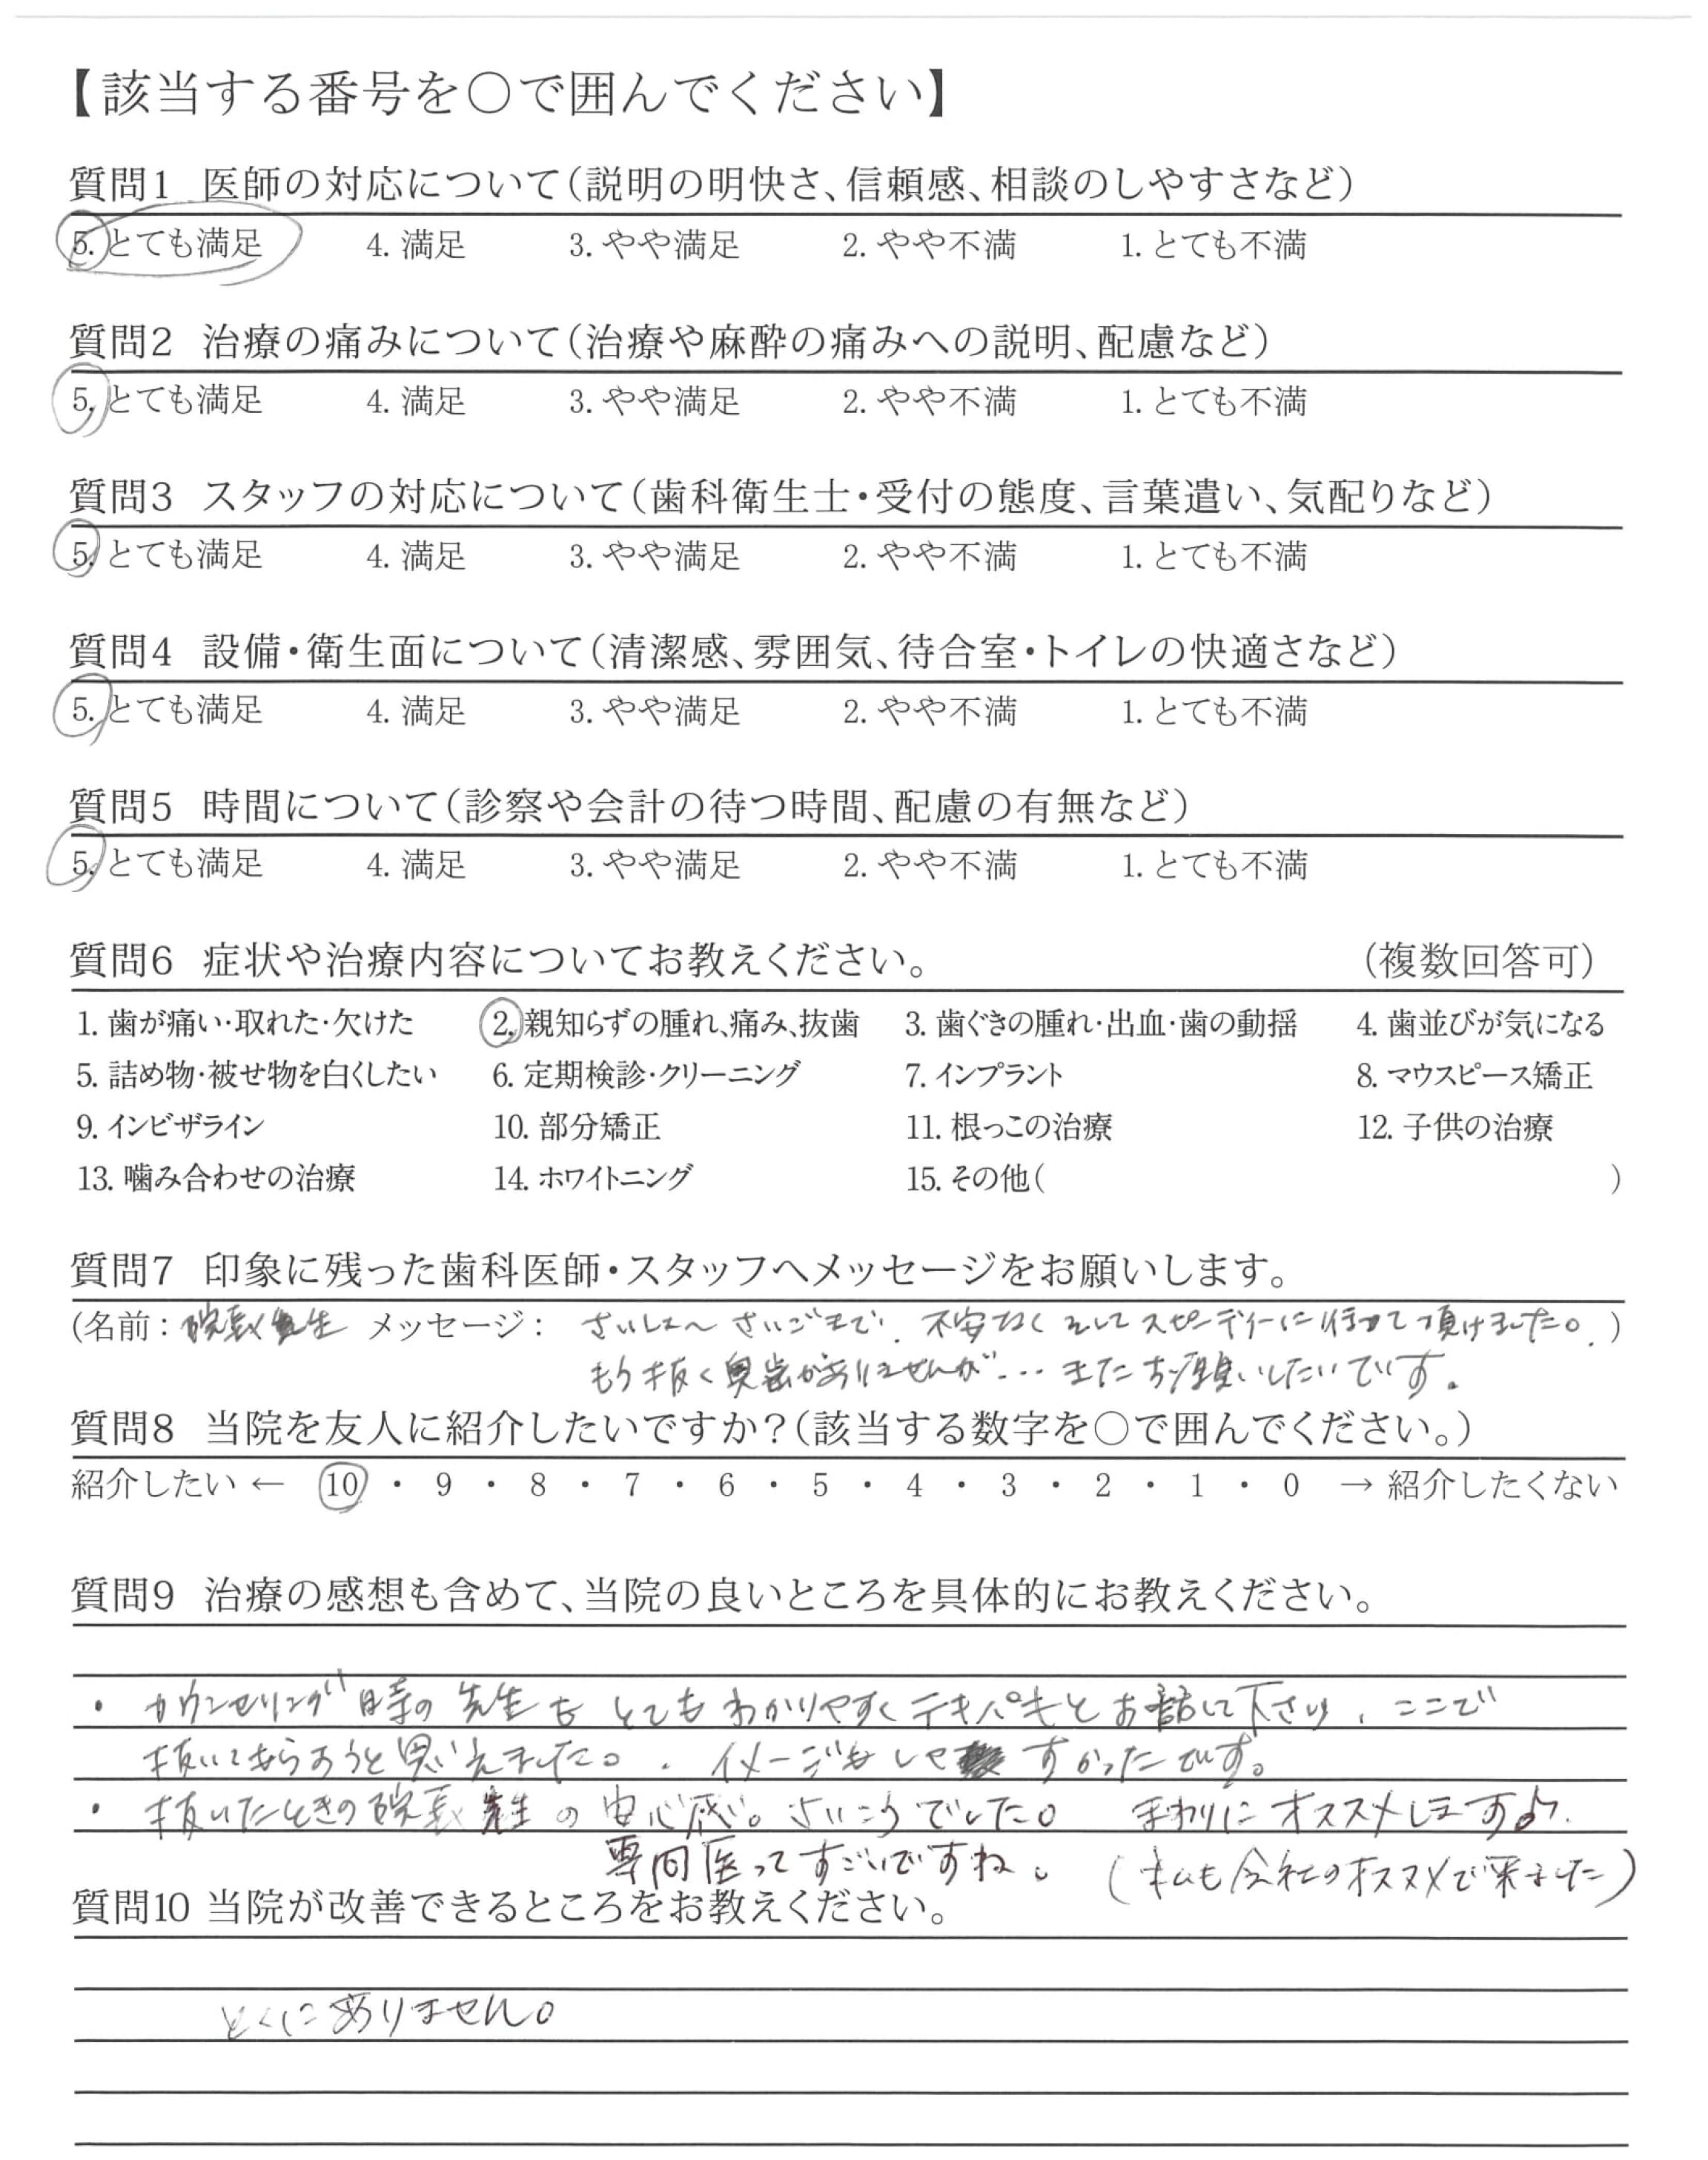 【該当する番号を○で囲んでください】
質問1 医師の対応について（説明の明快さ、信頼感、相談のしやすさなど）
5. とても満足 4. 満足 3. やや満足 2. やや不満 1. とても不満
質問2 治療の痛みについて（治療や麻酔の痛みへの説明、配慮など）
5. とても満足 4. 満足 3. やや満足 2. やや不満 1. とても不満
質問3 スタッフの対応について（歯科衛生士・受付の態度、言葉遣い、気配りなど）
5. とても満足 4. 満足 3. やや満足 2. やや不満 1. とても不満
質問4 設備・衛生面について（清潔感、雰囲気、待合室・トイレの快適さなど）
5. とても満足 4. 満足 3. やや満足 2. やや不満 1. とても不満
質問5 時間について（診察や会計の待つ時間、配慮の有無など）
5. とても満足 4. 満足 3. やや満足 2. やや不満 1. とても不満
質問6 症状や治療内容についてお教えください。 （複数回答可）
1. 歯が痛い・取れた・欠けた 2. 親知らずの腫れ、痛み、抜歯 3. 歯ぐきの腫れ・出血・歯の動揺 4. 歯並びが気になる
5. 詰め物・被せ物を白くしたい 6. 定期検診・クリーニング 7. インプラント 8. マウスピース矯正
9. インビザライン 10. 部分矯正 11. 根っこの治療 12. 子供の治療
13. 噛み合わせの治療 14. ホワイトニング 15. その他（ ）
質問7 印象に残った歯科医師・スタッフへメッセージをお願いします。
（名前：院長先生 メッセージ： さいしょ〜さいごまで、不安なくそしてスピーディーに行って頂けました。）
もう抜く奥歯がありませんが…またお願いしたいです。
質問8 当院を友人に紹介したいですか？（該当する数字を○で囲んでください。）
紹介したい ← 10 ・ 9 ・ 8 ・ 7 ・ 6 ・ 5 ・ 4 ・ 3 ・ 2 ・ 1 ・ 0 → 紹介したくない
質問9 治療の感想も含めて、当院の良いところを具体的にお教えください。
・ カウンセリング時の先生もとてもわかりやすくテキパキとお話して下さり、ここで
抜いてもらおうと思えました。イメージもしやすかったです。
・ 抜いたときの院長先生の安心感。さいこうでした。 まわりにオススメします♪
専門医ってすごいですね。 （私も会社のオススメで来ました）
質問10 当院が改善できるところをお教えください。
とくにありません。